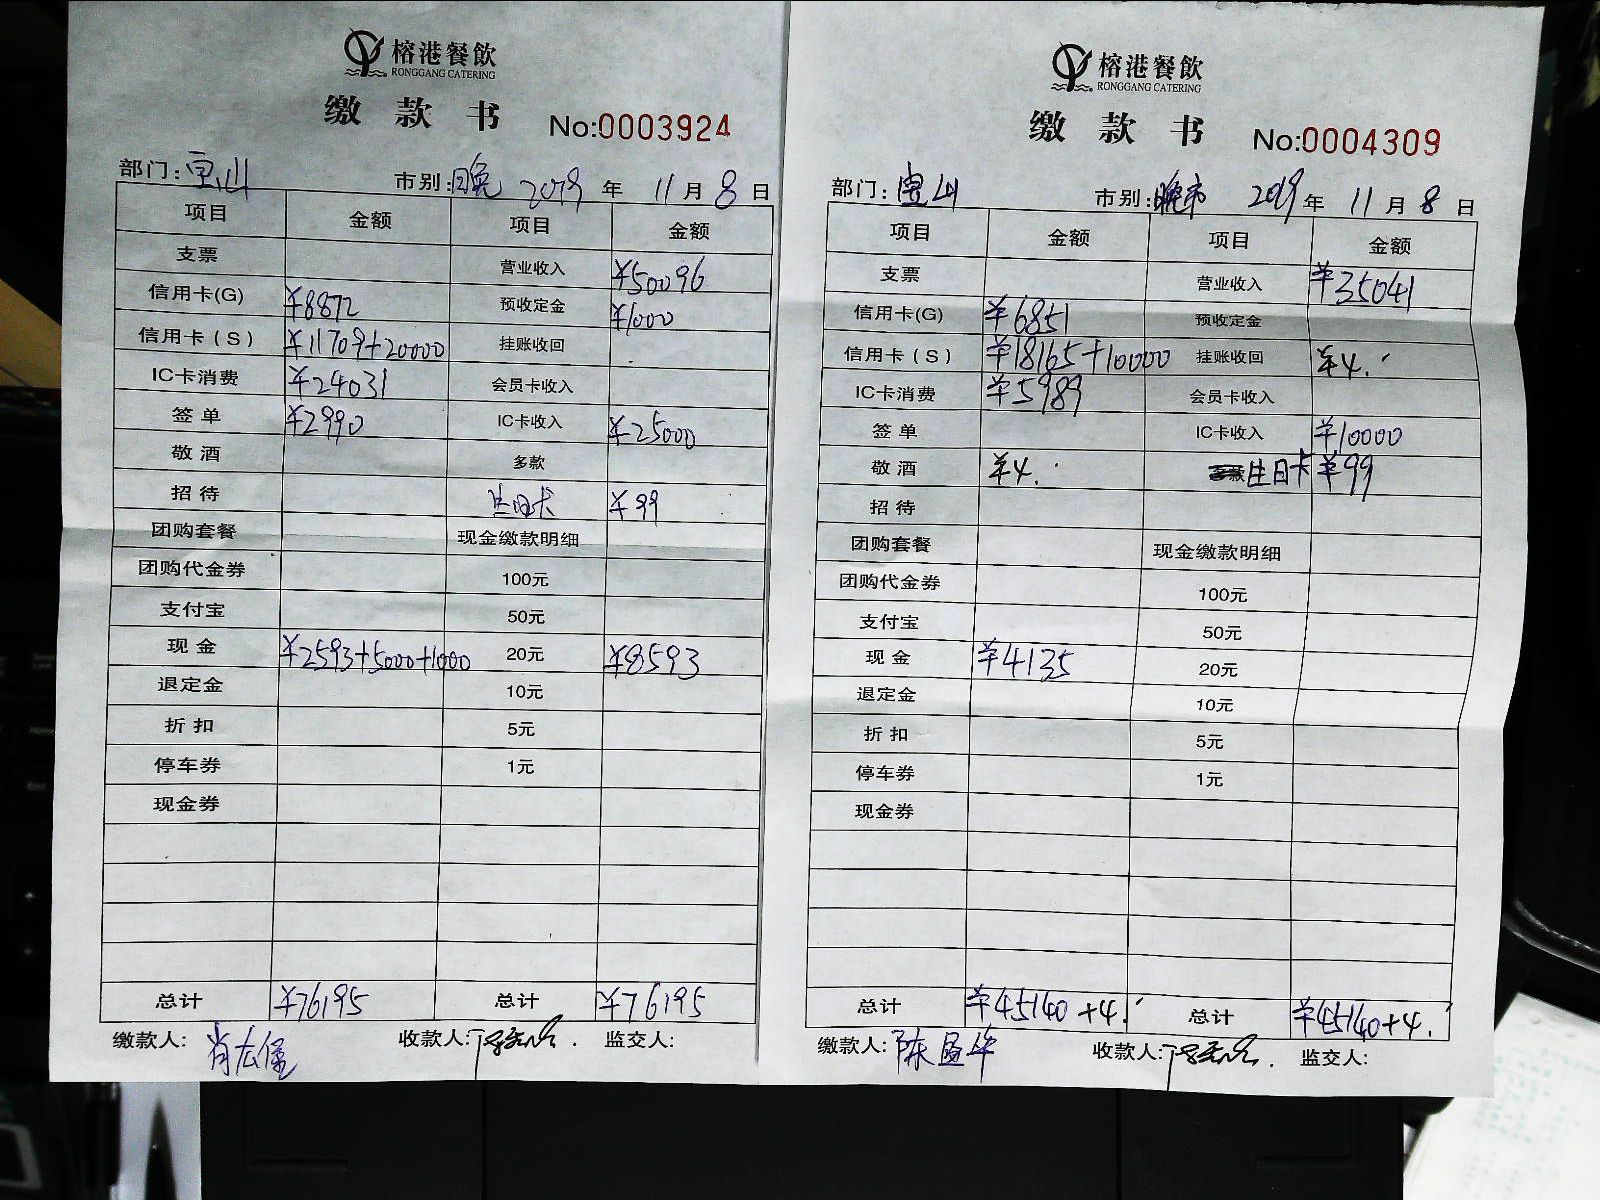 榕港餐飲
RONGGANG CATERING
缴 款 书 No:0003924
部门: 宝山 市别: 晚 2019 年 11 月 8 日
项目 金额 项目 金额
支票 营业收入 ¥50096
信用卡(G) ¥8872 预收定金 ¥1000
信用卡(S) ¥11709+20000 挂账收回
IC卡消费 ¥24031 会员卡收入
签 单 ¥2990 IC卡收入 ¥25000
敬 酒 多款
招 待 生日卡 ¥99
团购套餐 现金缴款明细
团购代金券 100元
支付宝 50元
现 金 ¥2593+5000+1000 20元 ¥8593
退定金 10元
折 扣 5元
停车券 1元
现金券
总计 ¥76195 总计 ¥76195
缴款人: 收款人: 监交人:
榕港餐飲
RONGGANG CATERING
缴 款 书 No:0004309
部门: 宝山 市别: 晚市 2019 年 11 月 8 日
项目 金额 项目 金额
支票 营业收入 ¥35041
信用卡(G) ¥6851 预收定金
信用卡(S) ¥18165+10000 挂账收回 ¥4.
IC卡消费 ¥5989 会员卡收入
签 单 IC卡收入 ¥10000
敬 酒 ¥4. 生日卡 ¥99
招 待
团购套餐 现金缴款明细
团购代金券 100元
支付宝 50元
现 金 ¥4135 20元
退定金 10元
折 扣 5元
停车券 1元
现金券
总计 ¥45140+4. 总计 ¥45140+4.
缴款人: 收款人: 监交人: